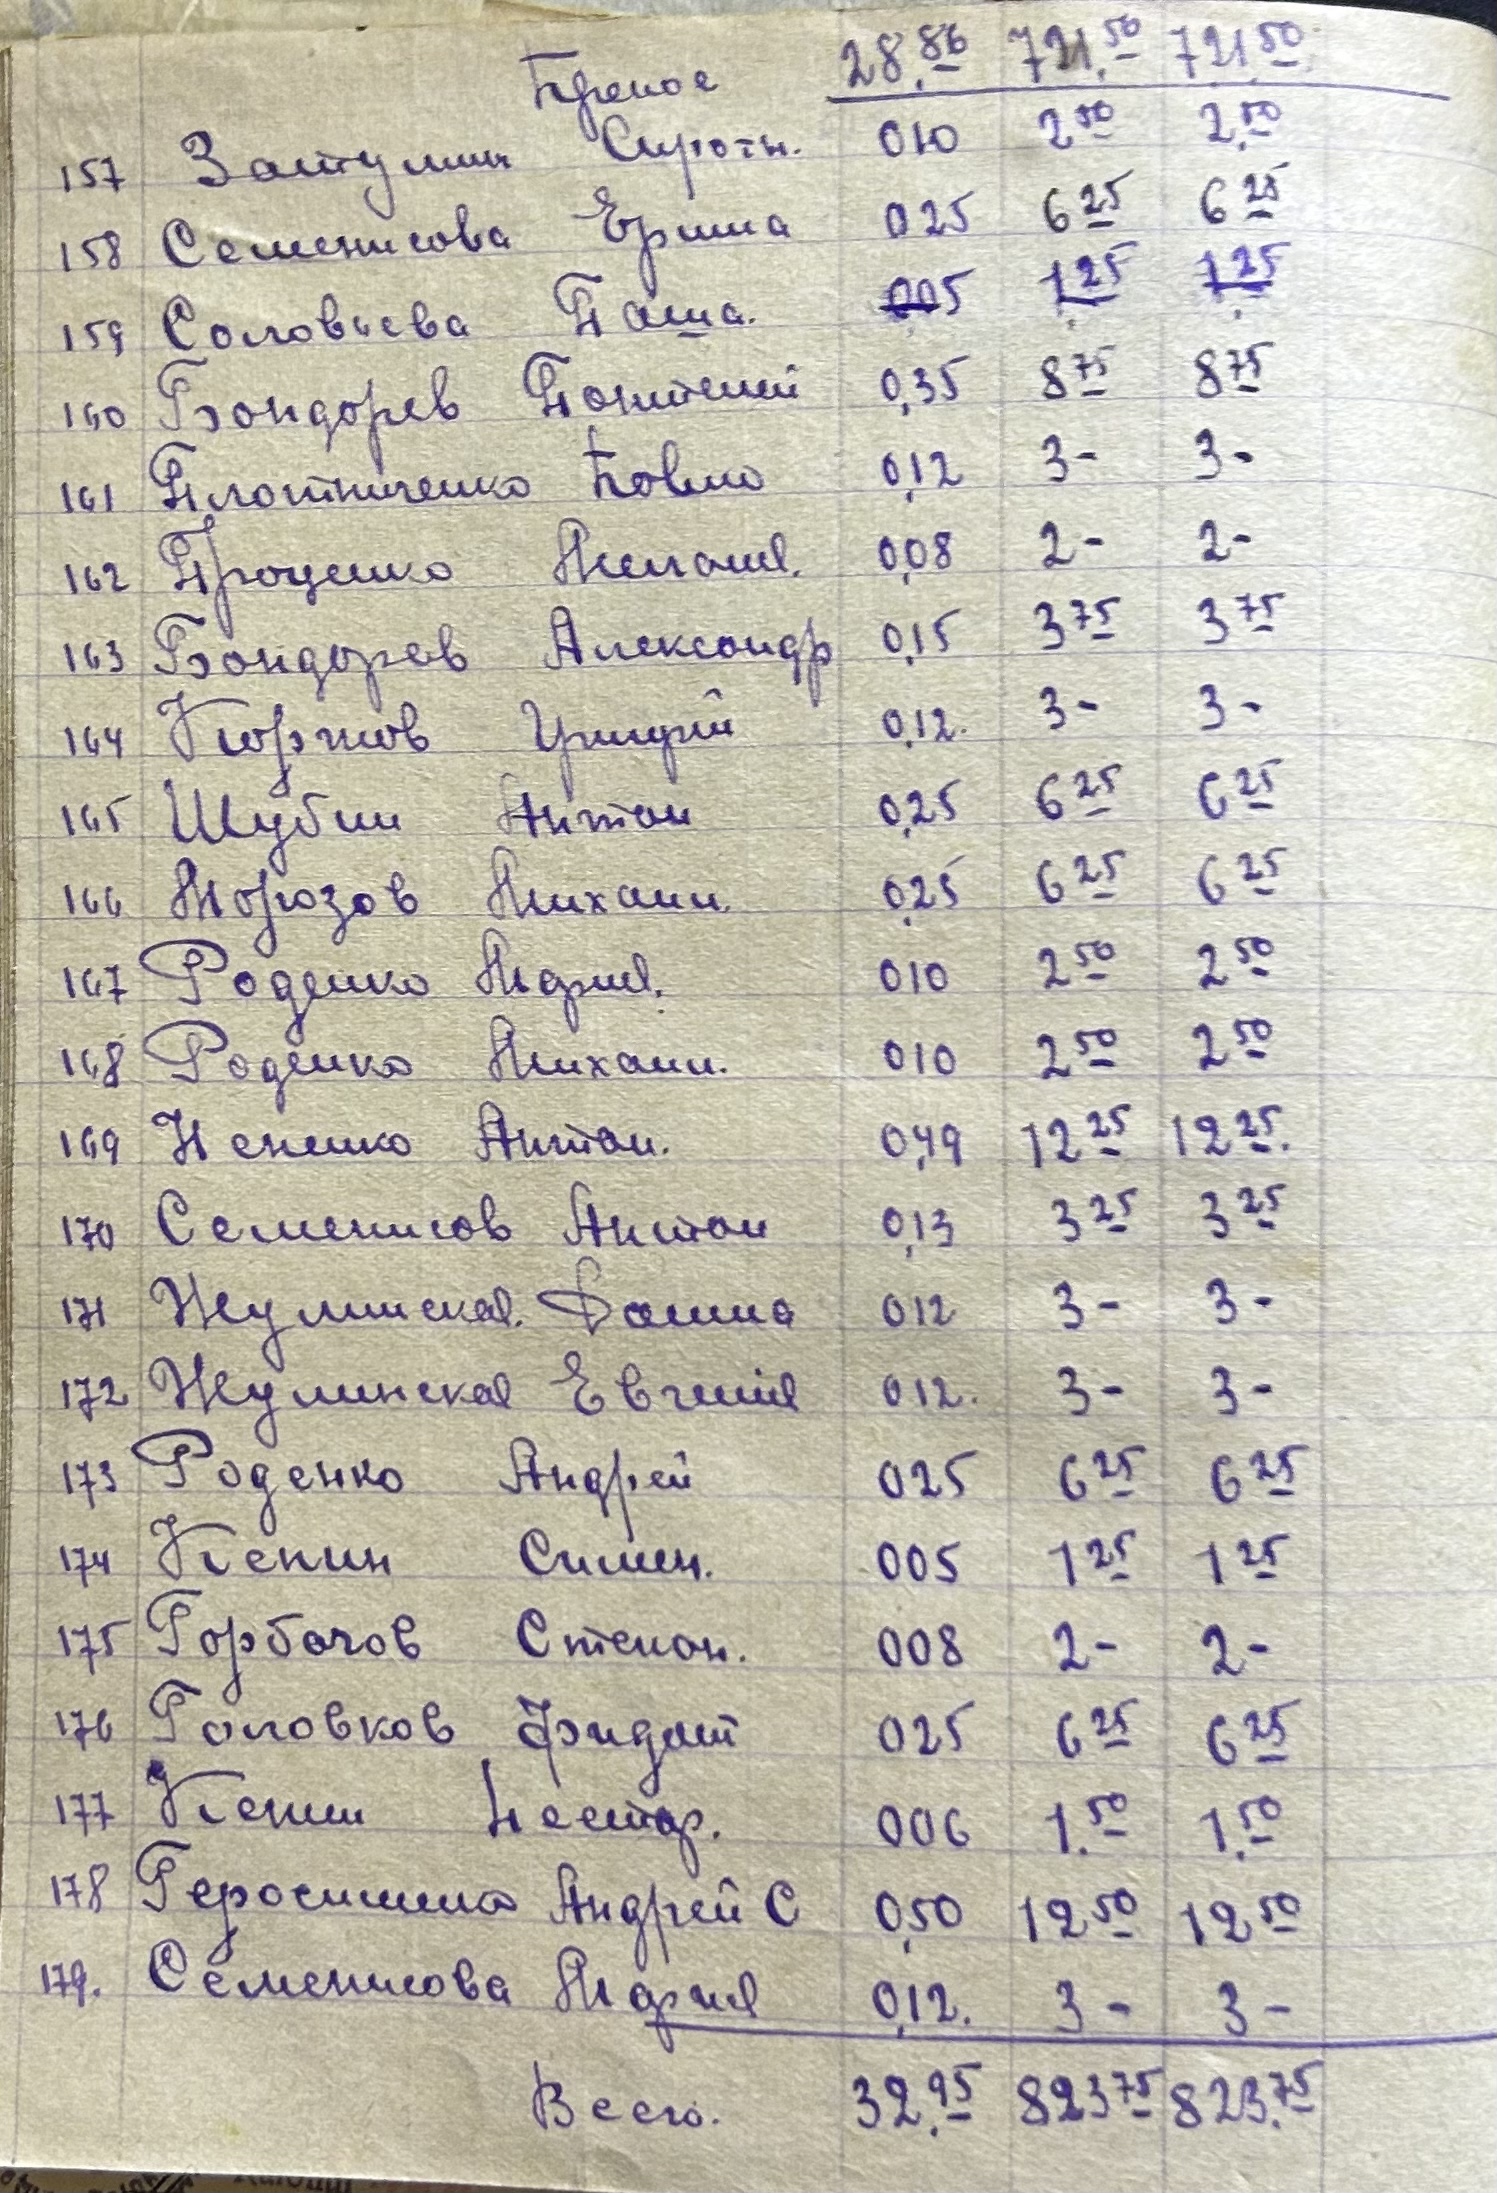 28,86 721,50 721,50
157 Затулин Сироты. 010 2 50 2,50
158 Семенисова Ерина 025 6 25 6 25
159 Соловьева Паша. 005 1 25 1 25
160 Бондорев 0,35 8 75 8 75
161 Плотниченко Повло 0,12 3- 3-
162 Проценко Милания. 0,08 2- 2-
163 Бондорев Александр 0,15 3 75 3 75
164 Коржов 0,12. 3- 3-
165 Шубин Антон 0,25 6 25 6 25
166 Морозов Михаил. 0,25 6 25 6 25
167 Роденко Мария. 010 2 50 2 50
168 Роденко Михаил. 010 2 50 2 50
169 Антон. 0,49 12 25 12 25.
170 Семенисов Антон 0,13 3 25 3 25
171 Жулинская. 012 3- 3-
172 Жулинская Евгения 012. 3- 3-
173 Роденко Андрей 025 6 25 6 25
174 Кепин Симен. 005 1 25 1 25
175 Горбочов Степон. 008 2- 2-
176 Головков 025 6 25 6 25
177 Кепин Нестор. 006 1.50 1,50
178 Геросименко Андрей С 0,50 12 50 12 50
179. Семенисова Мария 0,12. 3- 3-
Всего. 32,95 823 75 823,75